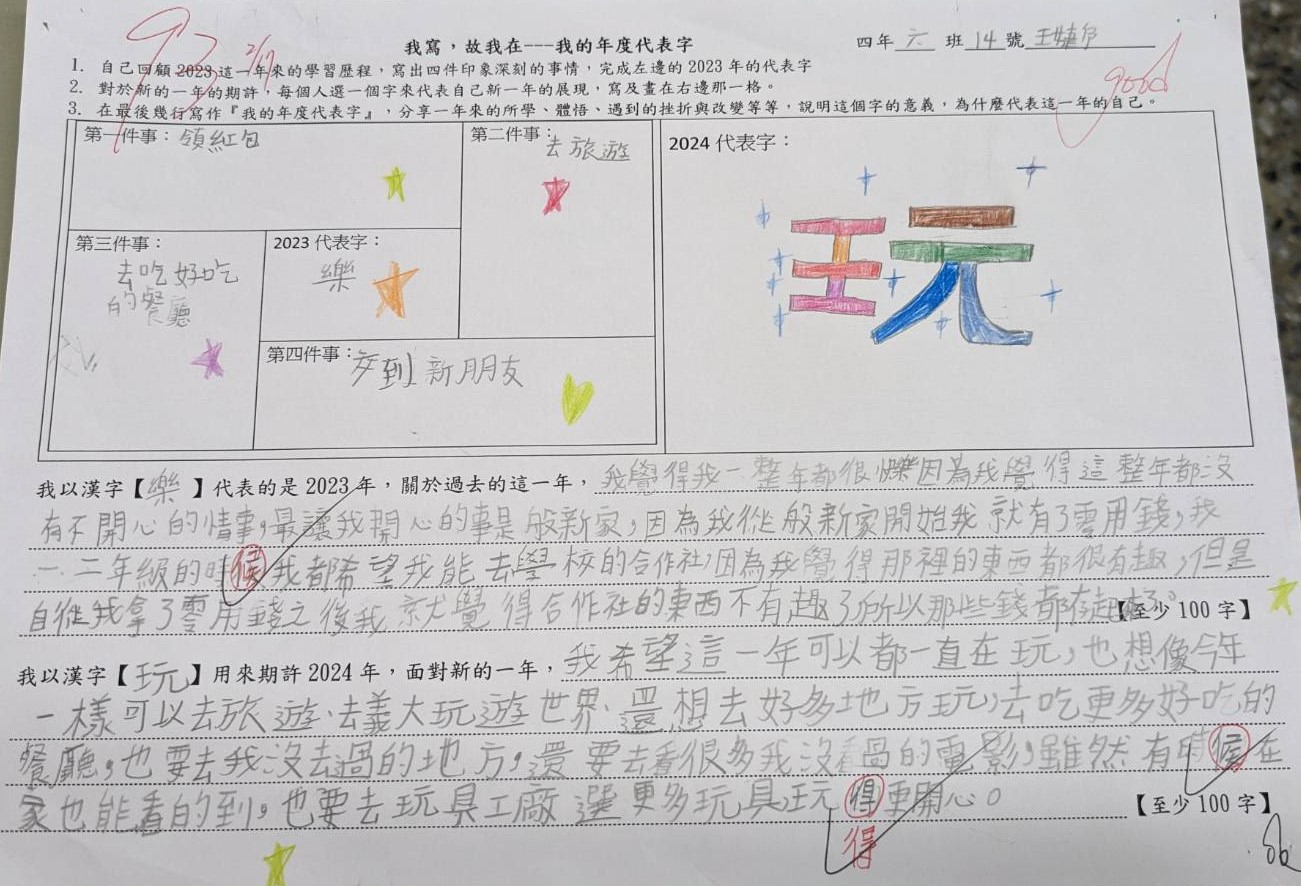 93 2/17
我寫，故我在---我的年度代表字
四年 六 班 14 號 王
good
1. 自己回顧 2023 這一年來的學習歷程，寫出四件印象深刻的事情，完成左邊的 2023 年的代表字
2. 對於新的一年的期許，每個人選一個字來代表自己新一年的展現，寫及畫在右邊那一格。
3. 在最後幾行寫作『我的年度代表字』，分享一年來的所學、體悟、遇到的挫折與改變等等，說明這個字的意義，為什麼代表這一年的自己。
第一件事：領紅包
第二件事：去旅遊
2024 代表字：
玩
第三件事：
去吃好吃
的餐廳
2023 代表字：
樂
第四件事：交到新朋友
我以漢字【樂】代表的是 2023 年，關於過去的這一年，我覺得我一整年都很快樂因為我覺得這整年都沒
有不開心的情事，最讓我開心的事是般新家，因為我從般新家開始我就有了零用錢，我
一、二年級的時候我都希望我能去學校的合作社，因為我覺得那裡的東西都很有趣，但是
自從我拿了零用錢之後我就覺得合作社的東西不有趣了所以那些錢都存起來。【至少 100 字】
我以漢字【玩】用來期許 2024 年，面對新的一年，我希望這一年可以都一直在玩，也想像今年
一樣可以去旅遊、去義大玩遊世界、還想去好多地方玩，去吃更多好吃的
餐廳，也要去我沒去過的地方，還要去看很多我沒看過的電影，雖然有時候在
家也能看的到。也要去玩具工廠選更多玩具玩得更開心。【至少 100 字】
得